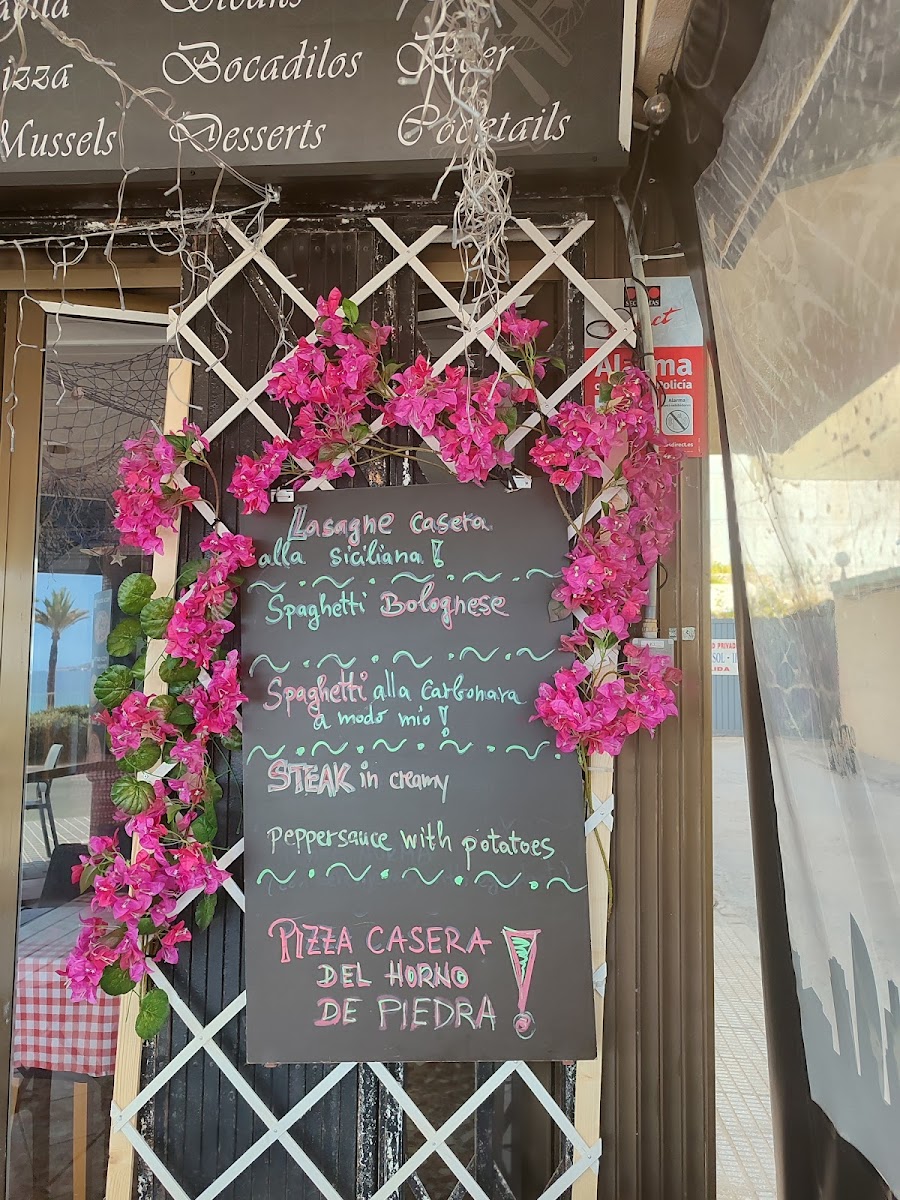 Bocadilos
Beer
izza
Mussels
Desserts
Cocktails
Alarma
Policía
Lasagne casera
alla siciliana!
Spaghetti Bolognese
Spaghetti alla Carbonara
a modo mio!
STEAK in creamy
peppersauce with potatoes
PIZZA CASERA
DEL HORNO
DE PIEDRA !